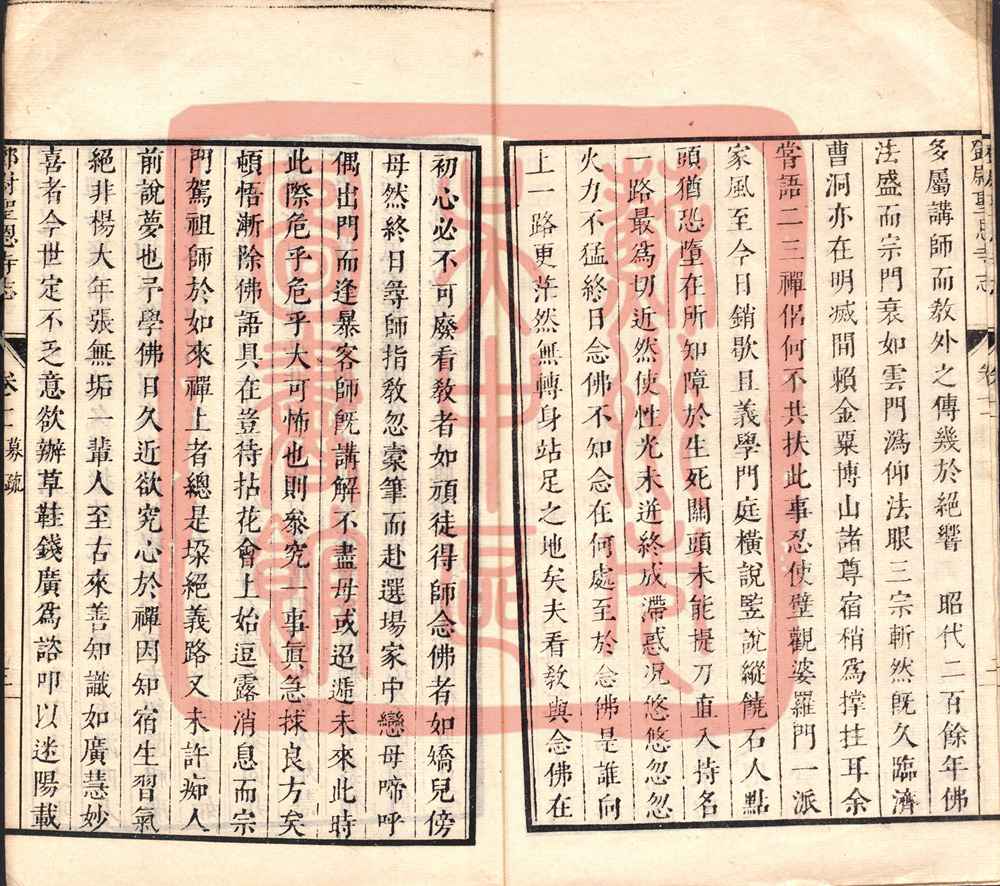 多屬講師而敎外之傳幾於絕響　昭代二百餘年佛
法盛而宗門衰如雲門潙仰法眼三宗斬然旣久臨濟
曹洞亦在明滅間賴金粟博山諸尊宿稍爲撑拄耳余
嘗語二三禪侶何不共扶此事忍使壁觀婆羅門一派
家風至今日銷歇且義學門庭橫說竪說縱饒石人點
頭猶恐墮在所知障於生死關頭未能提刀直入持名
一路最爲切近然使性光未迸終成滯惑况悠悠忽忽
火力不猛終日念佛不知念在何處至於念佛是誰向
上一路更茫然無轉身站足之地矣夫看敎與念佛在
初心必不可廢看敎者如頑徒得師念佛者如嬌兒傍
母然終日尋師指敎忽橐筆而赴選場家中戀母啼呼
偶出門而逢暴客師旣講解不盡母或迢遞未來此時
此際危乎危乎大可怖也則叅究一事眞急捄良方矣
頓悟漸除佛語具在豈待拈花會上始逗露消息而宗
門駕祖師於如來禪上者總是垜絕義路又未許痴人
前說夢也予學佛日久近欲究心於禪因知宿生習氣
絕非楊大年張無垢一輩人至古來善知識如廣慧妙
喜者今世定不乏意欲辦草鞋錢廣爲諮叩以迷陽載
鄧尉聖恩寺志　卷十二　募疏